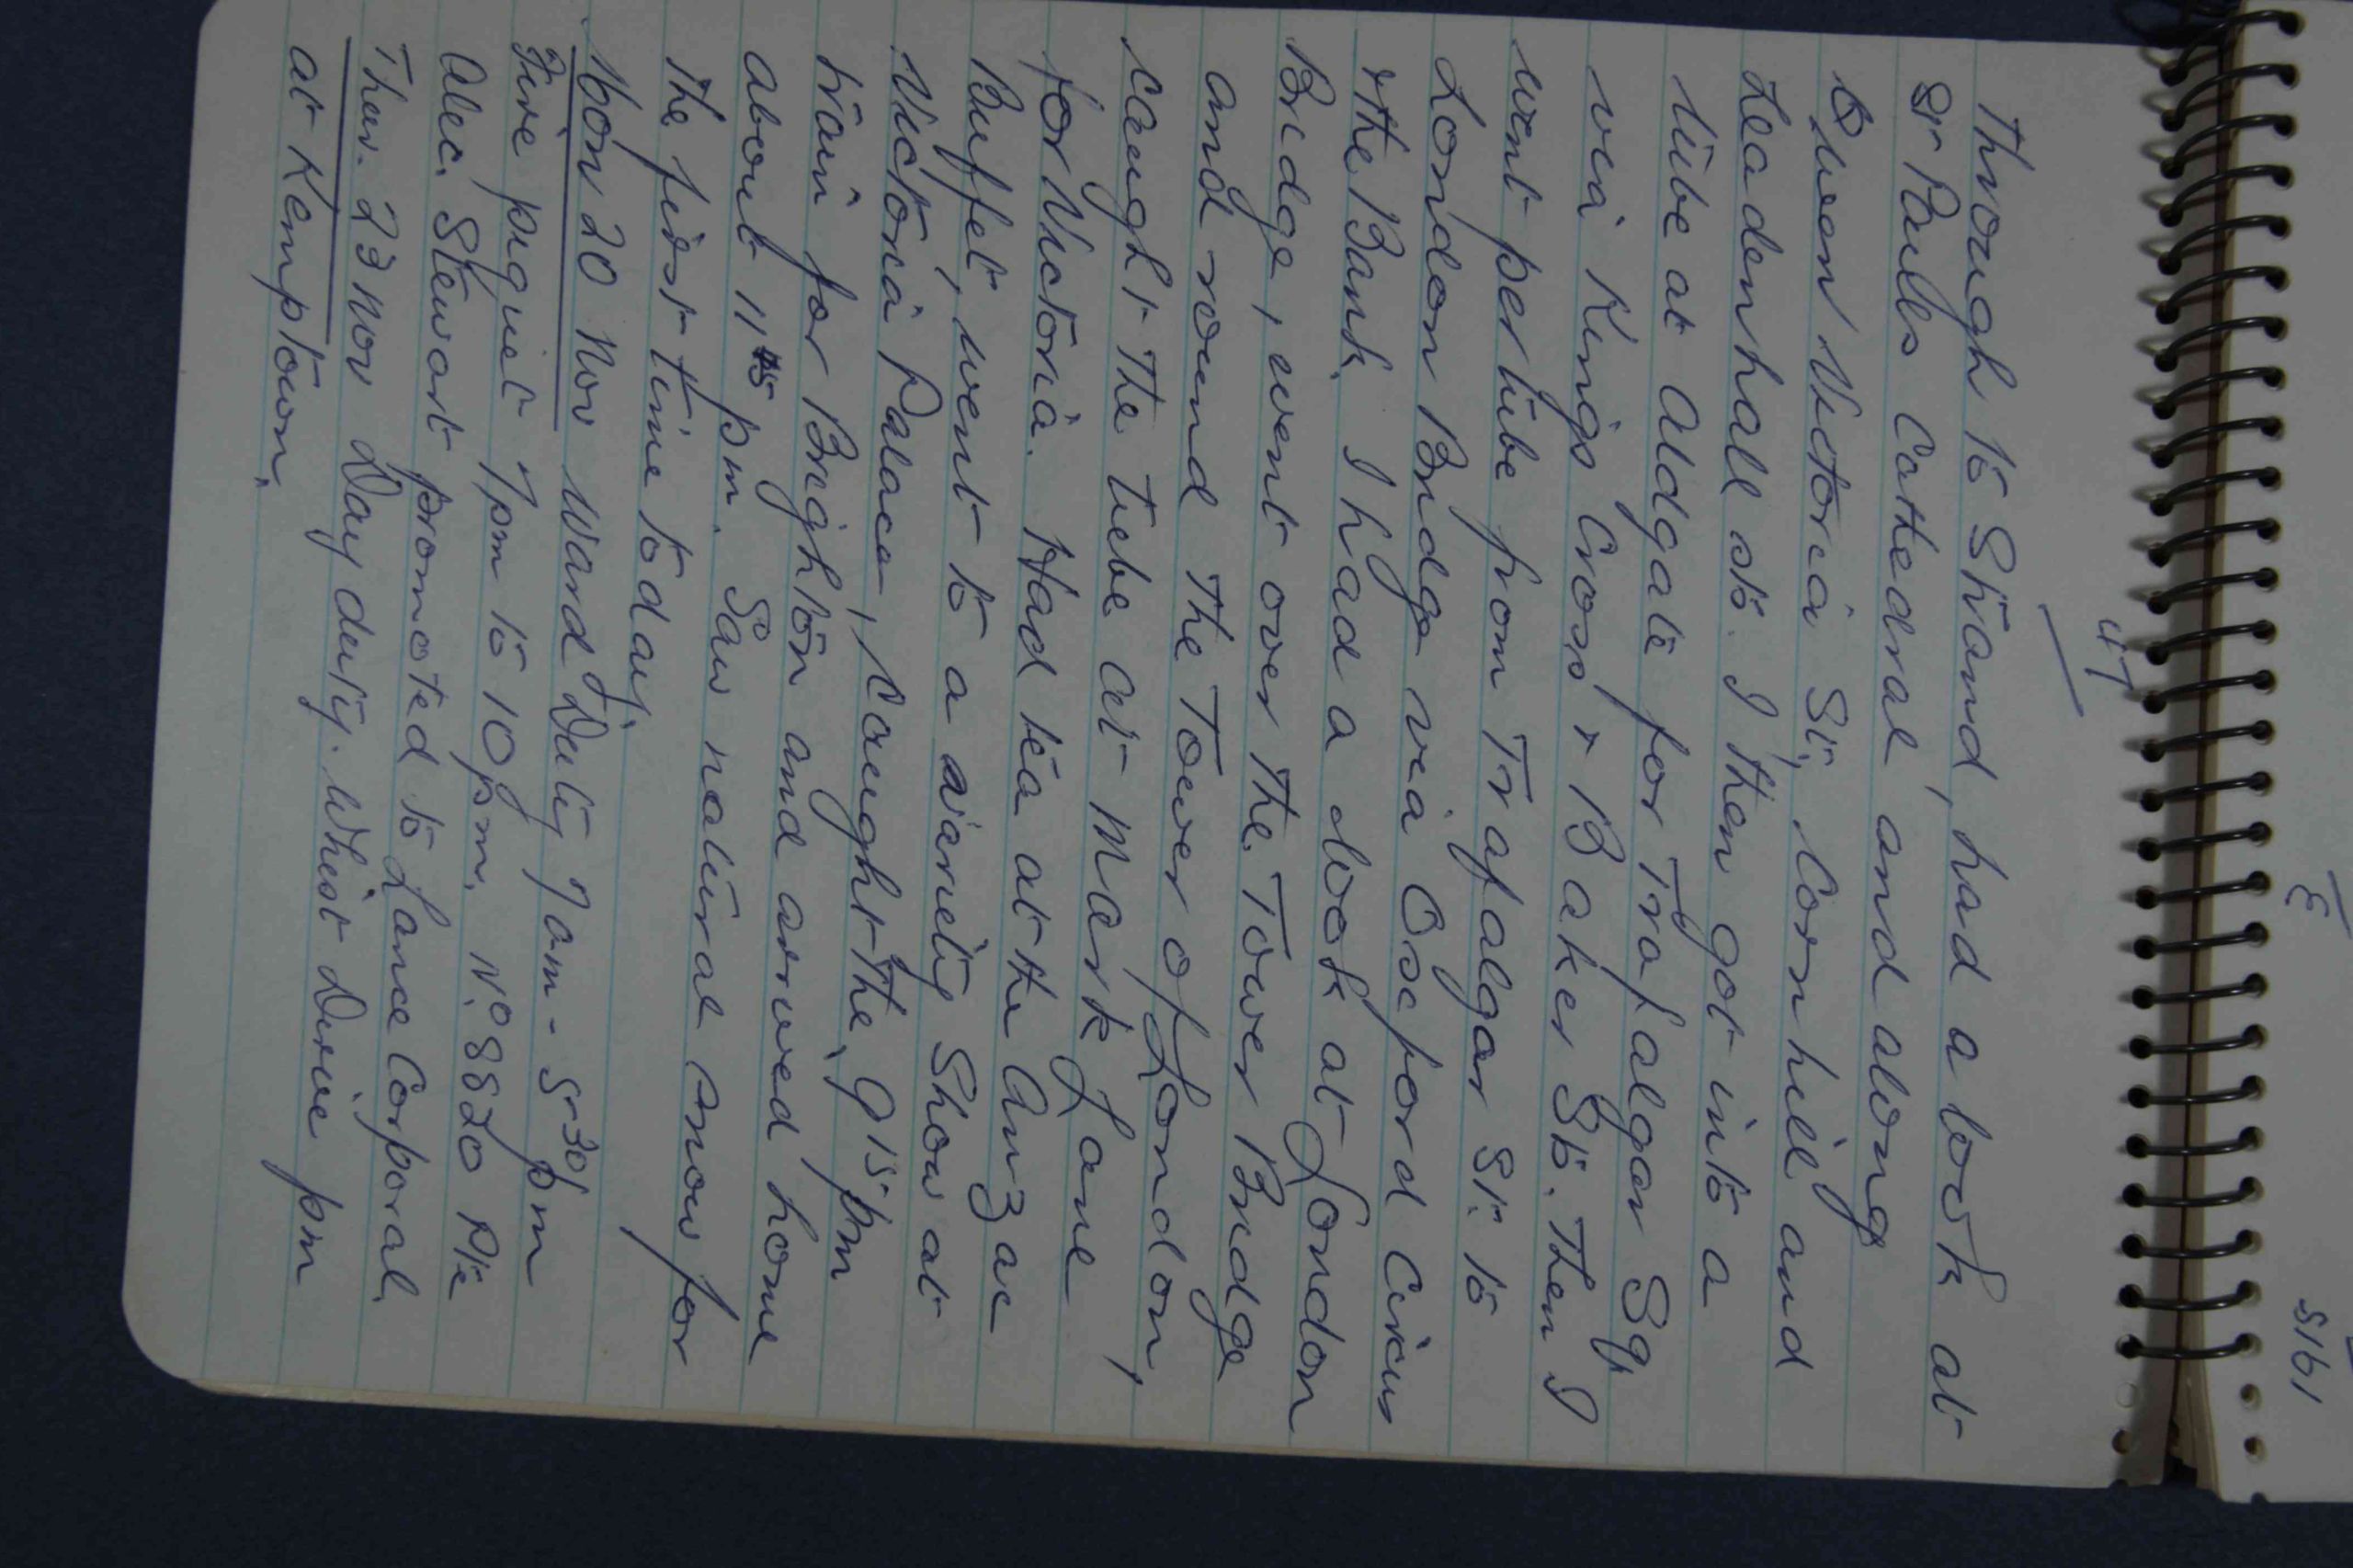 47
through to Strand, had a look at
St Pauls Cathedral and along
Queen Victoria St, Cornhill and
Leadenhall sts. I then got into a
tube at Aldgate for Trafalgar Sq,
via Kings Cross + Baker St. Then I
went per tube from Trafalgar St. to
London Bridge via Oxford Circus
+ the Bank. I had a look at London
Bridge, went over the Tower Bridge
and round the Tower of London,
caught the tube at Mark Lane
for Victoria. Had tea at the Anzac
Buffet, went to a variety Show at
Victoria Palace, caught the 9 15 pm
train for Brighton and arrived home
about 11 15 pm. Saw natural snow for
the first time today.
Mon 20 Nov Ward Duty 7am - 5-30 pm
Fire piquet 7pm to 10pm. No 8820 Pte
Alec. Stewart promoted to Lance Corporal.
Thur. 23 Nov Day duty. Whist Drive pm
at Kemptown.
1915